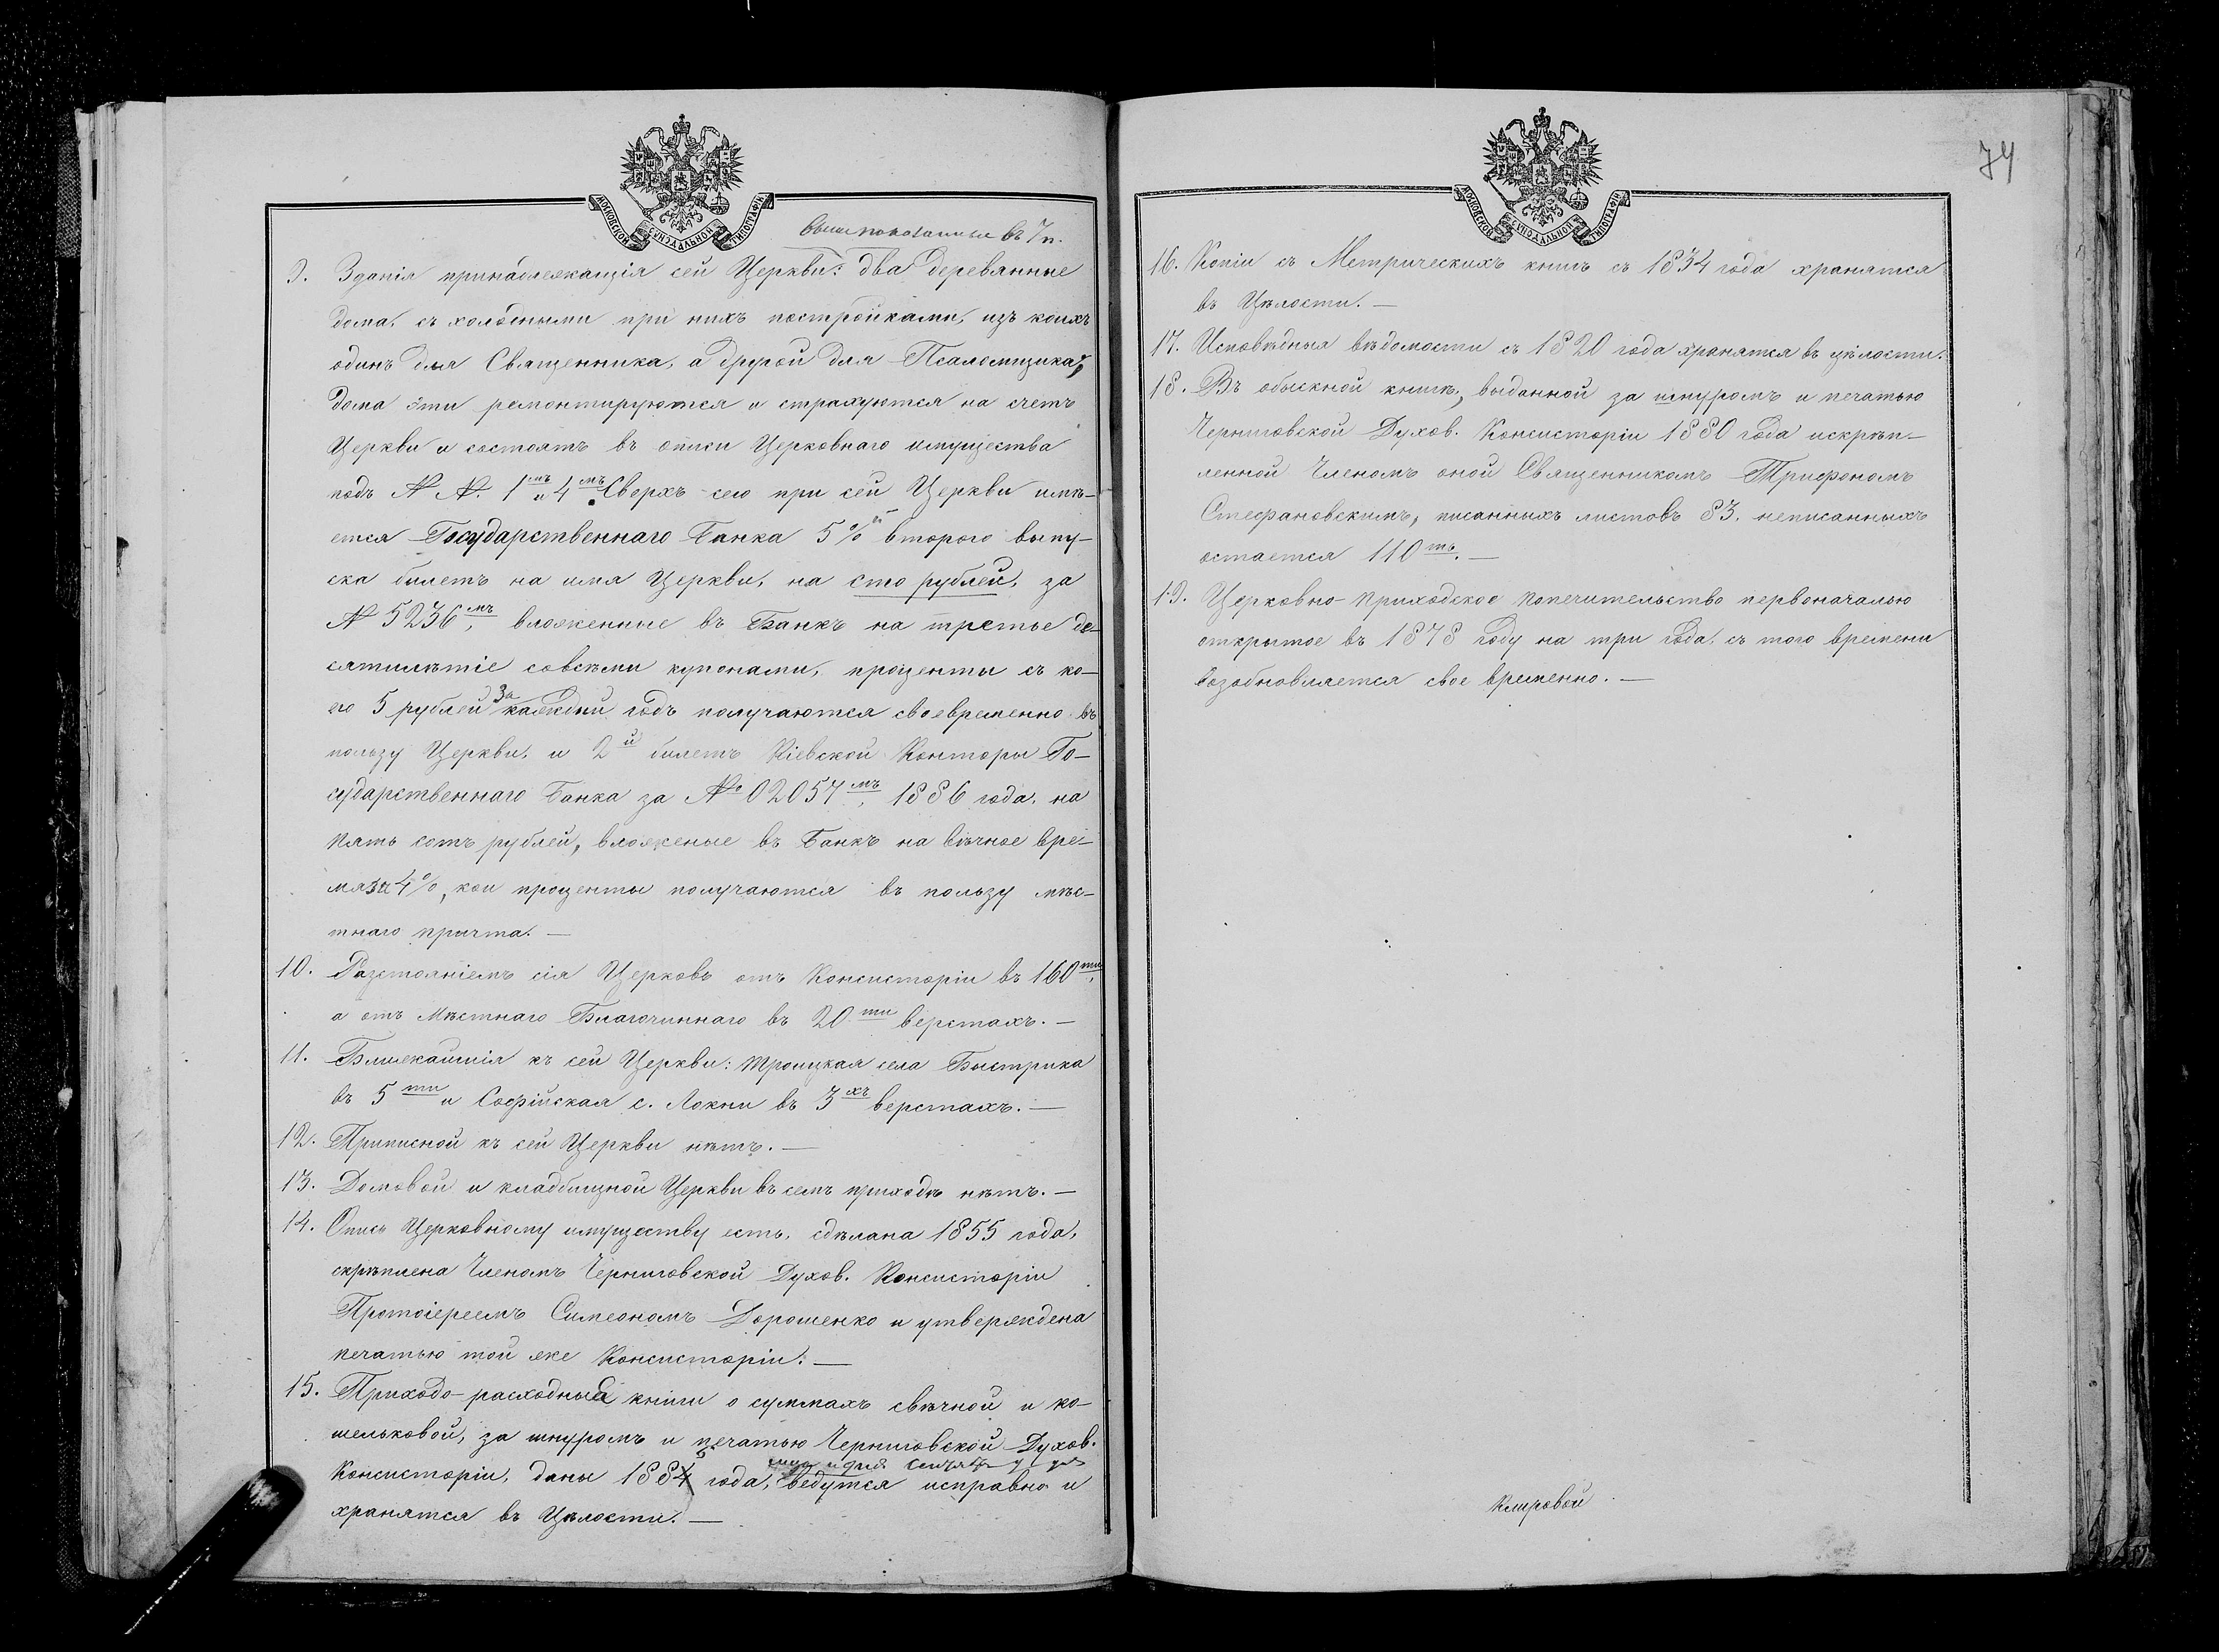 МОСКОВСКОЙ СѴНОДАЛЬНОЙ ТИПОГРАФІИ
вышепоказанные въ 7 п.
9. Зданія принадлежащія сей Церкви: два деревянные
дома, съ холодными при нихъ постройками, изъ коихъ
одинъ для Священника, а другой для Псаломщика,
дома эти ремонтируются и страхуются на счетъ
Церкви и состоятъ въ описи Церковнаго имущества
подъ N N. 1мъ и 4мъ. Сверхъ сего при сей Церкви имѣ-
ется Государственнаго Банка 5% второго выпу-
ска билетъ на имя Церкви, на сто рублей, за
N 5236мъ, вложенные въ Банкъ на третье де-
сятилѣтіе совсѣми купонами, проценты съ ко-
го 5 рублей за каждый годъ получаются своевременно въ
пользу Церкви, и 2й билетъ Кіевской Конторы Го-
сударственнаго Банка за № 02057мъ, 1886 года, на
пять сотъ рублей, вложеные въ Банкъ на вѣчное вре-
мя за 4%, кои проценты получаются въ пользу мѣс-
тнаго причта. —
10. Разстояніемъ сія Церковь отъ Консисторіи въ 160ти,
а отъ Мѣстнаго Благочиннаго въ 20ти верстахъ. —
11. Ближайшія къ сей Церкви: Троицкая села Быстрика
въ 5ти и Софійская с. Локни въ 3хъ верстахъ. —
12. Приписной къ сей Церкви нѣтъ. —
13. Домовой и кладбищной Церкви въ семъ приходѣ нѣтъ. —
14. Опись Церковному имуществу есть, сдѣлана 1855 года,
скрѣплена Членомъ Черниговской Духов. Консисторіи
Протоіереемъ Симеономъ Дорошенко и утверждена
печатью той же Консисторіи. —
15. Приходо-расходныя книги о суммахъ свѣчной и ко-
шельковой, за шнуромъ и печатью Черниговской Духов.
Консисторіи, даны 1885 года, ведутся исправно и
хранятся въ Цѣлости. —
74
МОСКОВСКОЙ СѴНОДАЛЬНОЙ ТИПОГРАФІИ
16. Копіи съ Метрическихъ книгъ съ 1834 года хранятся
въ Цѣлости. —
17. Исповѣдныя вѣдомости съ 1820 года хранятся въ цѣлости.
18. Въ обыскной книгѣ, выданной за шнуромъ и печатью
Черниговской Духов. Консисторіи 1880 года искрѣп-
ленной Членомъ оной Священникомъ Трифономъ
Стефановскимъ, писанныхъ листовъ 83, неписанныхъ
остается 110ть. —
19. Церковно-приходское попечительство первоначально
открытое въ 1878 году на три года, съ того времени
возобновляется свое временно. —
Клировой